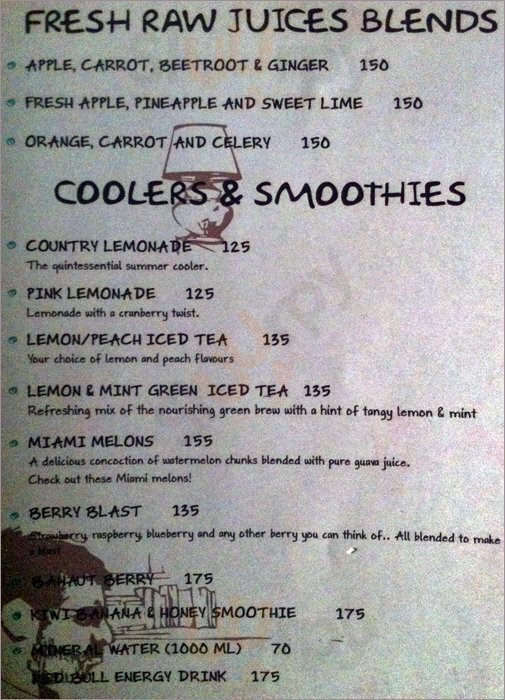 FRESH RAW JUICES BLENDS
APPLE, CARROT, BEETROOT & GINGER 150
FRESH APPLE, PINEAPPLE AND SWEET LIME 150
ORANGE, CARROT AND CELERY 150
COOLERS & SMOOTHIES
COUNTRY LEMONADE 125
The quintessential summer cooler.
PINK LEMONADE 125
Lemonade with a cranberry twist.
LEMON/PEACH ICED TEA 135
Your choice of lemon and peach flavours
LEMON & MINT GREEN ICED TEA 135
Refreshing mix of the nourishing green brew with a hint of tangy lemon & mint
MIAMI MELONS 155
A delicious concoction of watermelon chunks blended with pure guava juice.
Check out these Miami melons!
BERRY BLAST 135
Strawberry, raspberry, blueberry and any other berry you can think of.. All blended to make
a blast
BAHAUT BERRY 175
KIWI BANANA & HONEY SMOOTHIE 175
MINERAL WATER (1000 ML) 70
RED BULL ENERGY DRINK 175